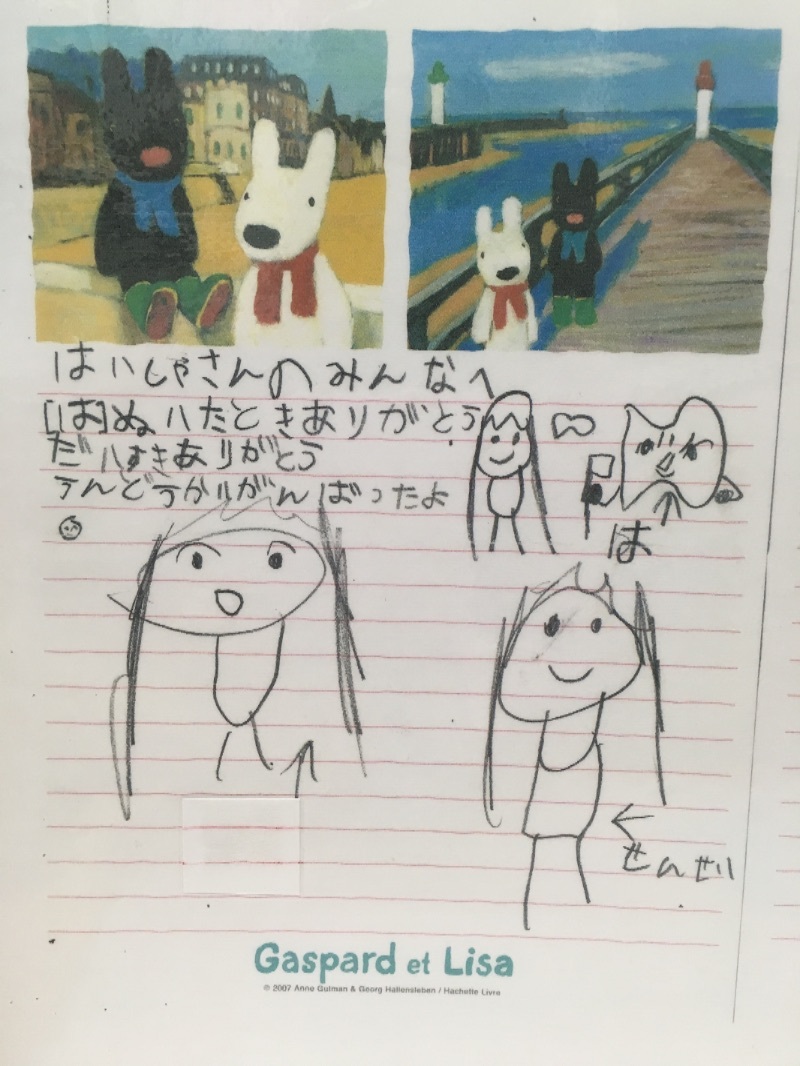 はいしゃさんのみんなへ
[は]ぬいたときありがとう
だいすきありがとう
うんどうかいがんばったよ
は
せんせい
Gaspard et Lisa
© 2007 Anne Gutman & Georg Hallensleben / Hachette Livre